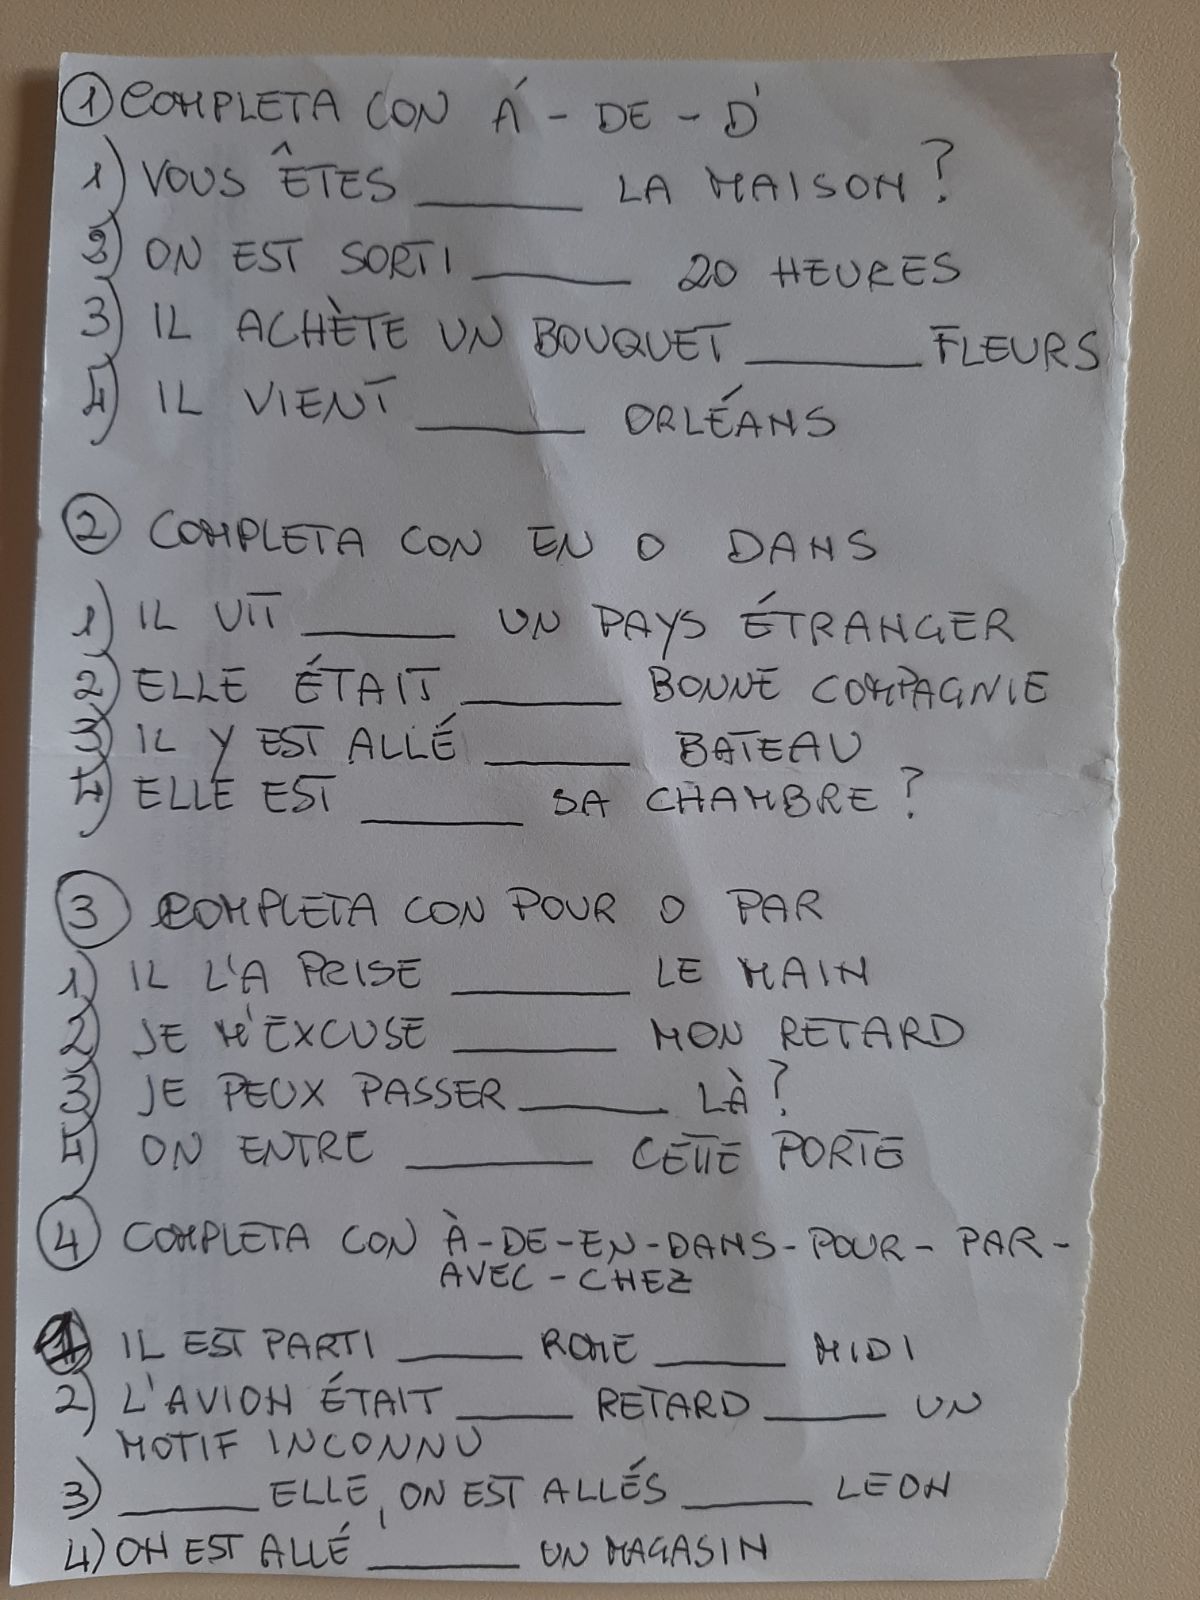 ① COMPLETA CON Á - DE - D'
1) VOUS ÊTES ______ LA MAISON?
2) ON EST SORTI ______ 20 HEURES
3) IL ACHÈTE UN BOUQUET ______ FLEURS
4) IL VIENT ______ ORLÉANS
② COMPLETA CON EN O DANS
1) IL VIT ______ UN PAYS ÉTRANGER
2) ELLE ÉTAIT ______ BONNE COMPAGNIE
3) IL Y EST ALLÉ ______ BATEAU
4) ELLE EST ______ SA CHAMBRE?
③ COMPLETA CON POUR O PAR
1) IL L'A PRISE ______ LE MAIN
2) JE M'EXCUSE ______ MON RETARD
3) JE PEUX PASSER ______ LÀ?
4) ON ENTRE ______ CETTE PORTE
④ COMPLETA CON À-DE-EN-DANS-POUR-PAR-
AVEC-CHEZ
1) IL EST PARTI ______ ROME ______ MIDI
2) L'AVION ÉTAIT ______ RETARD ______ UN
MOTIF INCONNU
3) ______ ELLE, ON EST ALLÉS ______ LEON
4) ON EST ALLÉ ______ UN MAGASIN